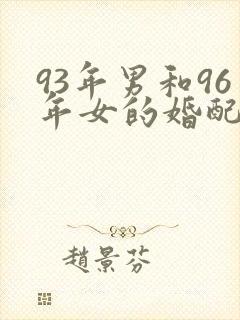 93年男和96
年女的婚配
趙景芬